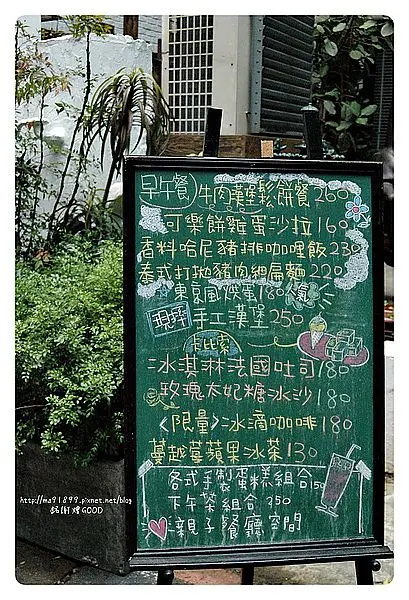 早午餐/牛肉漢堡鬆餅餐260
可樂餅雞蛋沙拉160
香料哈尼豬排咖哩飯230
泰式打拋豬肉細扁麵220
東京風炊蛋180 人氣
現烤 手工漢堡250
卡比索
冰淇淋法國吐司180
玫瑰太妃糖冰沙180
<限量>冰滴咖啡180
蔓越莓蘋果冰茶130
各式手製蛋糕組合150
下午茶組合250
親子餐廳空間
http://ma91899.pixnet.net/blog
GOOD